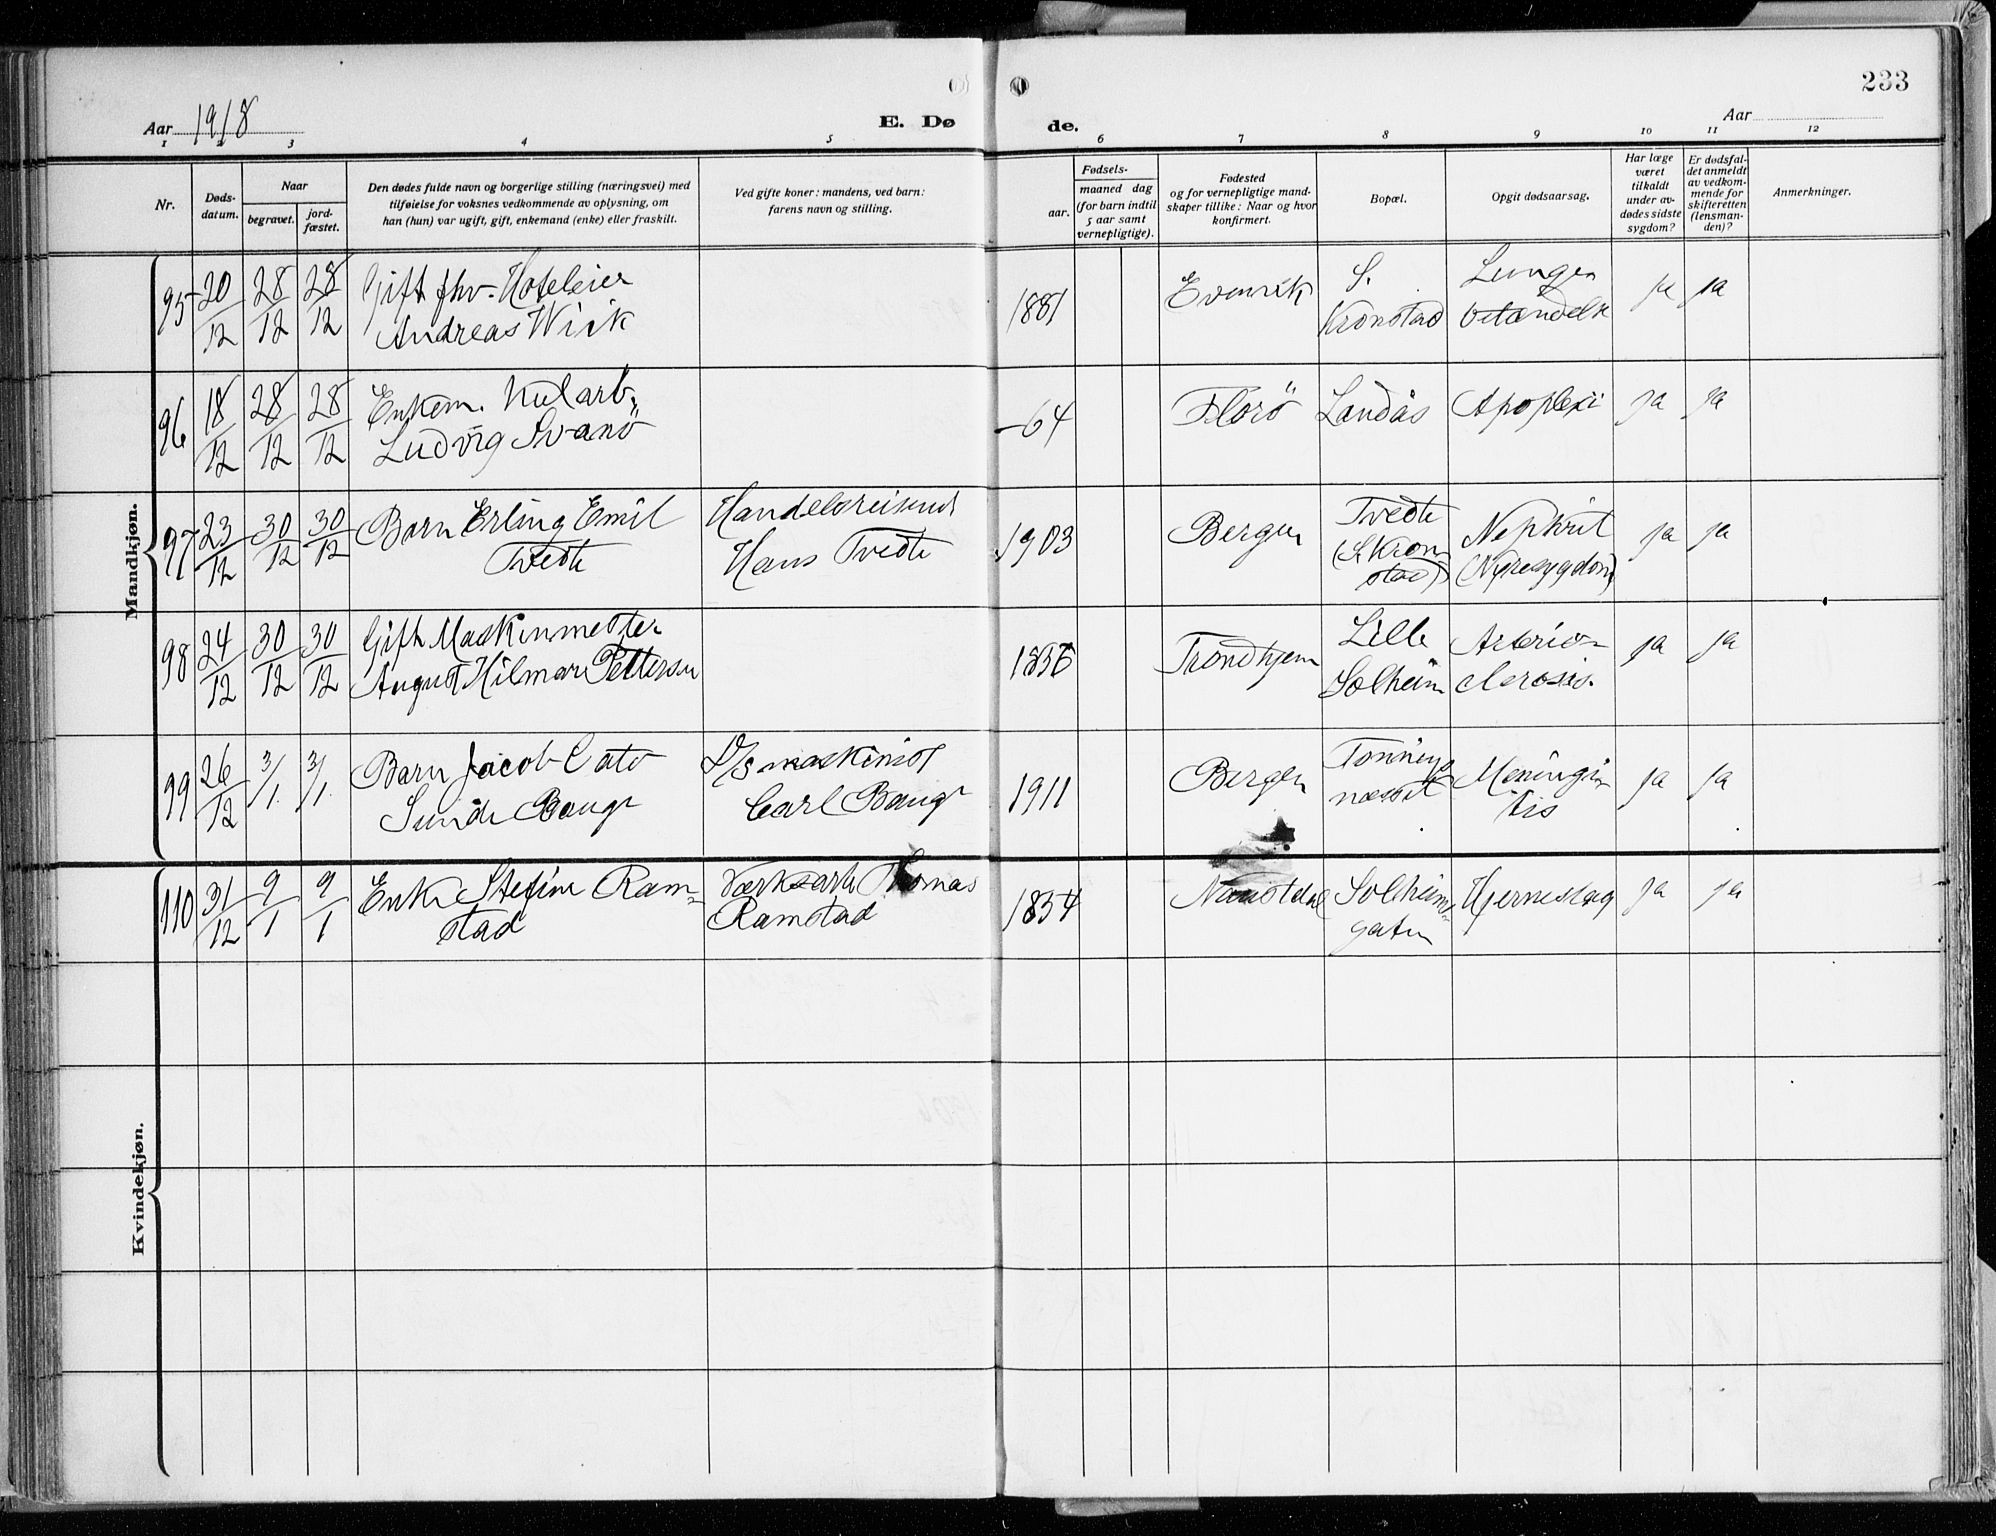 233
Aar 1918
E. Døde.
Aar
1 2 3 4 5 6 7 8 9 10 11 12
Nr.
Dødsdatum.
Naar
begravet.
jordfæstet.
Den dødes fulde navn og borgerlige stilling (næringsvei) med
tilføielse for voksnes vedkommende av oplysning, om
han (hun) var ugift, gift, enkemand (enke) eller fraskilt.
Ved gifte koner: mandens, ved barn:
farens navn og stilling.
Fødsels-
aar.
maaned dag
(for barn indtil
5 aar samt
vernepligtige).
Fødested
og for vernepligtige mand-
skaper tillike: Naar og hvor
konfirmert.
Bopæl.
Opgit dødsaarsag.
Har læge
været
tilkaldt
under av-
dødes sidste
sygdom?
Er dødsfal-
det anmeldt
av vedkom-
mende for
skifteretten
(lensman-
den)?
Anmerkninger.
Mandkjøn.
95 20/12 28/12 28/12 Gift fhv. Hoteleier
Andreas Wiik
1881 Evenvik S.
Kronstad Lunge
betændelse ja ja
96 18/12 28/12 28/12 Enkem.
Ludvig Svanö
-64 Florö Landås Apoplexi ja ja
97 23/12 30/12 30/12 Barn Erling Emil
Tvedt
Handelsreisend
Hans Tvedt
1903 Bergen Tvedt
(S. Kron
stad) Nephrit
(Nyresygdom) ja ja
98 24/12 30/12 30/12 Gift Maskinmester
August Hilmar Pettersen
Trondhjem Lille
Solheim Arterio-
clerosis. ja ja
99 26/12 3/1 3/1 Barn Jacob Cato
Sunde Baug
D/s maskinist
Carl Baug
1911 Bergen Meningi
tis ja ja
Kvindekjøn.
110 31/12 9/1 9/1 Enke Stefine Ram-
stad
Værksarb. Thomas
Ramstad
1834 Naustdal Solheims-
gaten Hjerneslag ja ja